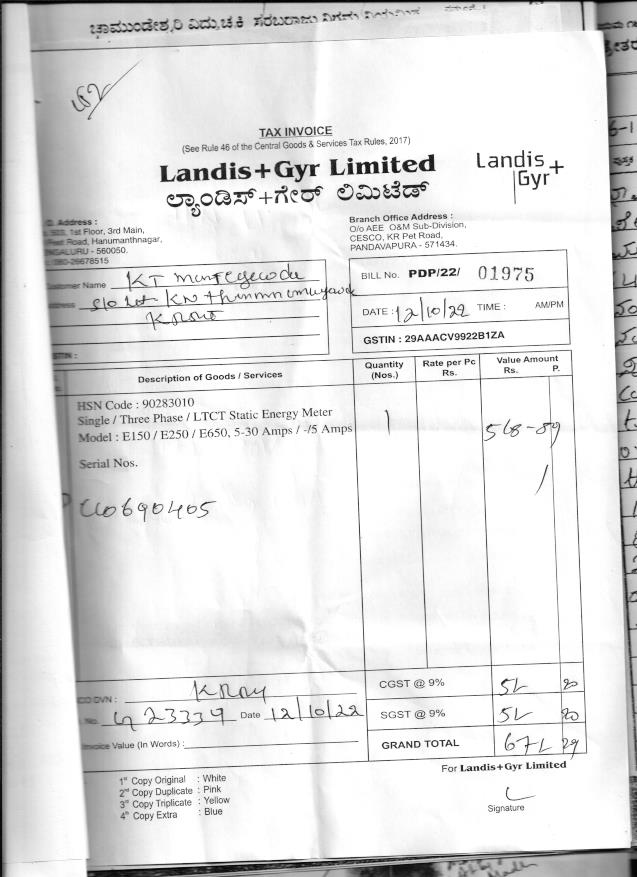 ಚಾಮುಂಡೇಶ್ವರಿ ವಿದ್ಯುಚ್ಛಕ್ತಿ ಸರಬರಾಜು ನಿಗಮ ನಿಯಮಿತ
TAX INVOICE
(See Rule 46 of the Central Goods & Services Tax Rules, 2017)
Landis+Gyr Limited
ಲ್ಯಾಂಡಿಸ್+ಗೇರ್ ಲಿಮಿಟೆಡ್
Landis+
Gyr
Address :
1st Floor, 3rd Main,
Road, Hanumanthnagar,
- 560050.
080-26678515
Branch Office Address :
O/o AEE O&M Sub-Division,
CESCO, KR Pet Road,
PANDAVAPURA - 571434.
Customer Name KT
Address S/o
BILL No. PDP/22/ 01975
DATE : 12/10/22 TIME : AM/PM
GSTIN : 29AAACV9922B1ZA
GSTIN :
Description of Goods / Services
Quantity (Nos.)
Rate per Pc Rs.
Value Amount Rs. P.
HSN Code : 90283010
Single / Three Phase / LTCT Static Energy Meter
Model : E150 / E250 / E650, 5-30 Amps / -/5 Amps
1
568-89
Serial Nos.
DVN :
CGST @ 9% 51 20
No. 23339 Date 12/10/22
SGST @ 9% 51 20
Invoice Value (In Words) :
GRAND TOTAL 671 29
For Landis+Gyr Limited
1st Copy Original : White
2nd Copy Duplicate : Pink
3rd Copy Triplicate : Yellow
4th Copy Extra : Blue
Signature